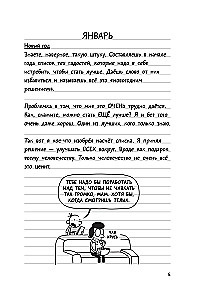 ЯНВАРЬ
Новый год
Знаете, наверное, такую штуку. Составляешь в начале
года список тех гадостей, которые надо в себе
истребить, чтобы стать лучше. Даёшь слово от них
избавиться и называешь всё это «новогодним
решением».
Проблема в том, что мне это ОЧЕНЬ трудно даётся.
Как, скажите, можно стать ЕЩЁ лучше? Я и без того
очень даже хорош. Один из лучших, кого только знаю.
Так вот я кое-что изобрёл насчёт списка. Я принял
решение — улучшить ВСЕХ вокруг. Вроде как подарок
всему человечеству. Только человечество не очень всё
это ценит.
ТЕБЕ НАДО БЫ ПОРАБОТАТЬ
НАД ТЕМ, ЧТОБЫ НЕ ЧАВКАТЬ
ТАК ГРОМКО, МАМ. ХОТЯ БЫ,
КОГДА СМОТРИШЬ ТЕЛИК.
ЧАВ
ХРУСЬ